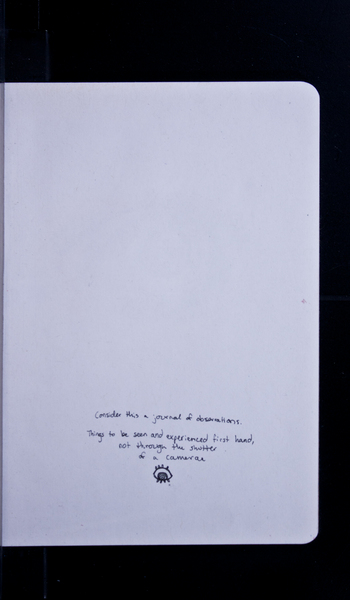 Consider this a journal of observations.
Things to be seen and experienced first hand,
not through the shutter
of a camera